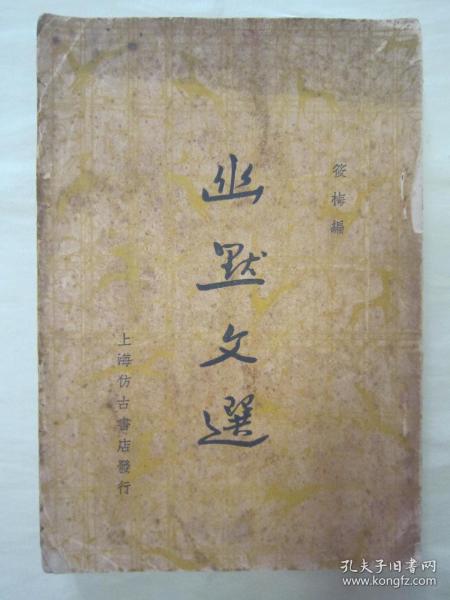 筱梅編
幽默文選
上海仿古書店發行
孔夫子旧书网
www.kongfz.com